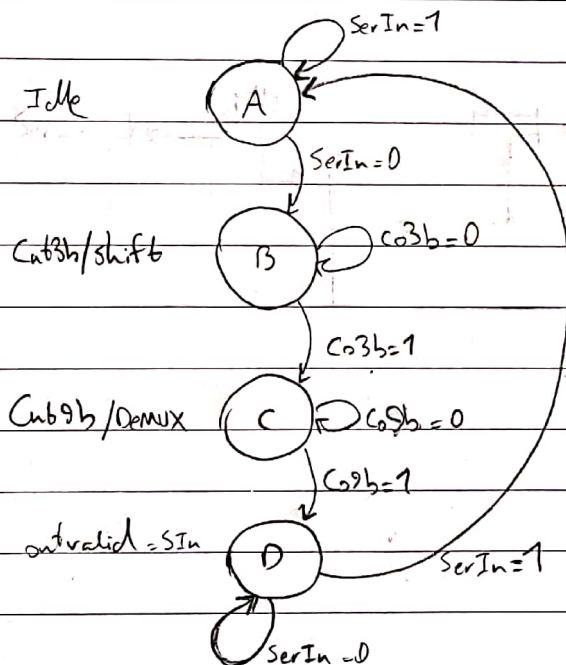 SerIn=1
Idle
A
SerIn=0
Cnt3b/shift
B
Co3b=0
Co3b=1
Cnt9b/DeMUX
C
Co9b=0
Co9b=1
outvalid=SIn
D
SerIn=1
SerIn=0